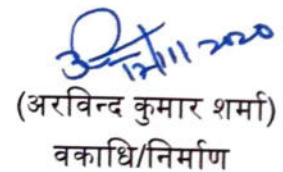 12/11/2020
(अरविन्द कुमार शर्मा)
वकाधि/निर्माण